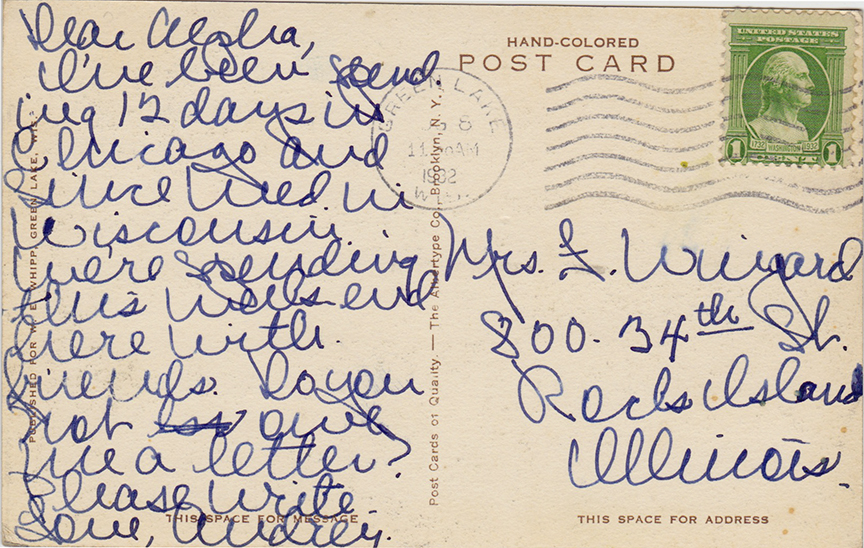 Dear Alpha,
I've been spend
ing 12 days in
Chicago and
since Wed. in
Wisconsin.
We're spending
this week-end
here with
friends. Do you
not owe
me a letter?
Please write.
Love, Audrey.
THIS SPACE FOR MESSAGE
PUBLISHED FOR WHIPP, GREEN LAKE, WIS.
Post Cards of Quality. — The Albertype Co., Brooklyn, N. Y.
HAND-COLORED
POST CARD
GREEN LAKE
8
11 AM
1932
WIS.
UNITED STATES
POSTAGE
1732 WASHINGTON 1932
1 CENT 1
Mrs. F. Wingard
800 - 34th St.
Rock Island
Illinois.
THIS SPACE FOR ADDRESS